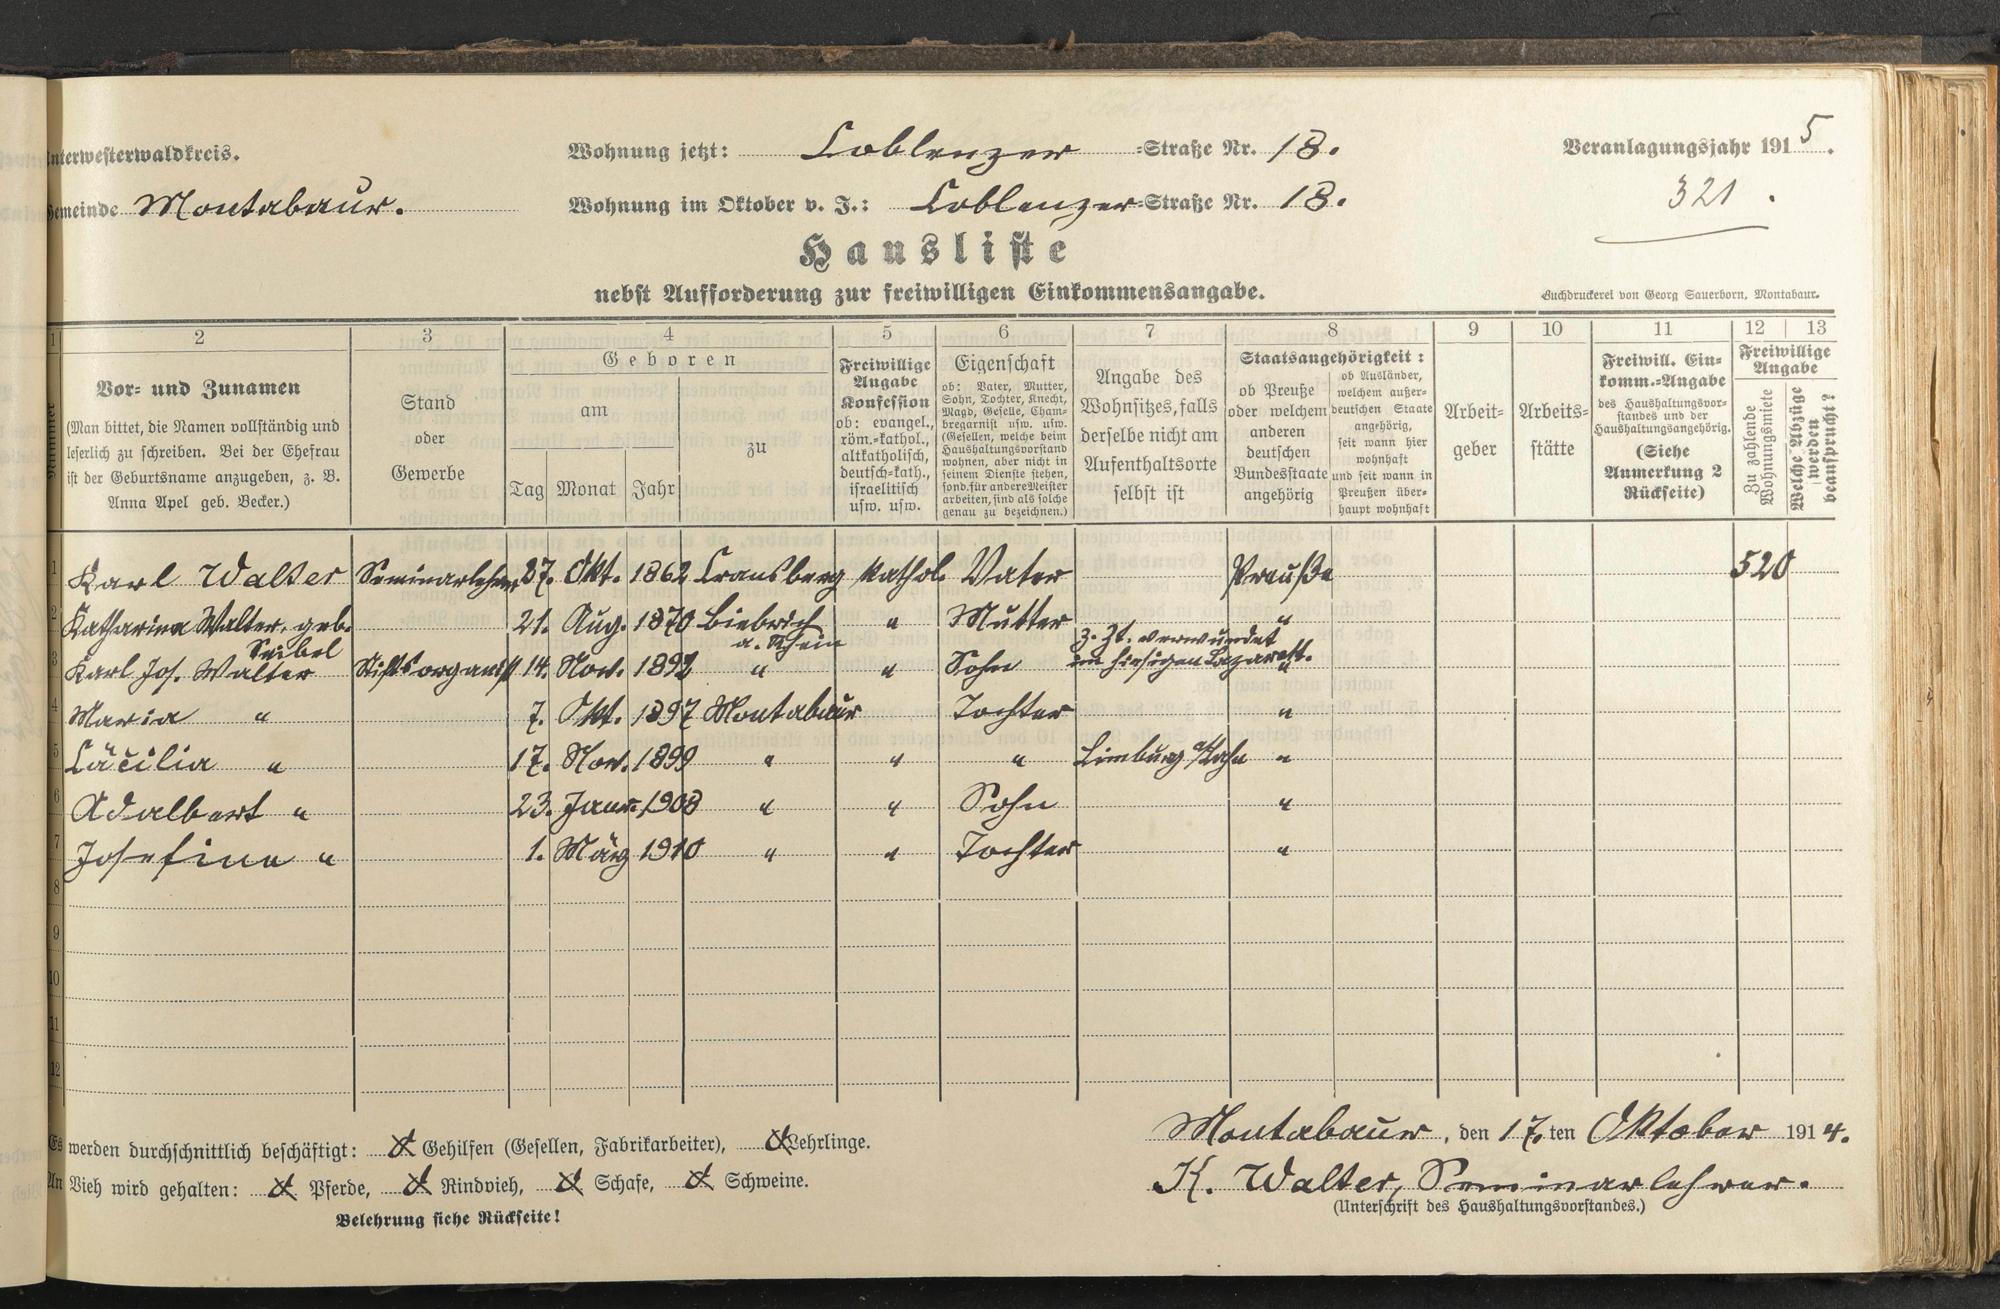 nterwesterwaldkreis.
Wohnung jetzt: Coblenzer =Straße Nr. 18.
Veranlagungsjahr 1915.
emeinde Montabaur.
Wohnung im Oktober v. J.: Coblenzer =Straße Nr. 18.
321.
Hausliste
nebst Aufforderung zur freiwilligen Einkommensangabe.
Buchdruckerei von Georg Sauerborn, Montabaur.
1 2 3 4 5 6 7 8 9 10 11 12 13
Nummer
Vor- und Zunamen
(Man bittet, die Namen vollständig und
leserlich zu schreiben. Bei der Ehefrau
ist der Geburtsname anzugeben, z. B.
Anna Apel geb. Becker.)
Stand
oder
Gewerbe
Geboren
am
Tag Monat Jahr
zu
Freiwillige
Angabe
Konfession
ob: evangel.,
röm.=kathol.,
altkatholisch,
deutsch=kath.,
israelitisch
usw. usw.
Eigenschaft
ob: Vater, Mutter,
Sohn, Tochter, Knecht,
Magd, Geselle, Cham=
bregarnist usw. usw.
(Gesellen, welche beim
Haushaltungsvorstand
wohnen, aber nicht in
seinem Dienste stehen,
sond. für andere Meister
arbeiten, sind als solche
genau zu bezeichnen.)
Angabe des
Wohnsitzes, falls
derselbe nicht am
Aufenthaltsorte
selbst ist
Staatsangehörigkeit:
ob Preuße
oder welchem
anderen
deutschen
Bundesstaate
angehörig
ob Ausländer,
welchem außer=
deutschen Staate
angehörig,
seit wann hier
wohnhaft
und seit wann in
Preußen über=
haupt wohnhaft
Arbeit=
geber
Arbeits=
stätte
Freiwill. Ein=
komm.=Angabe
des Haushaltungsvor=
standes und der
Haushaltungsangehörig.
(Siehe
Anmerkung 2
Rückseite)
Freiwillige
Angabe
Zu zahlende
Wohnungsmiete
Welche Abzüge
werden
beansprucht?
1 Karl Walter Seminarlehrer 27. Okt. 1862 Cransberg kathol. Vater Preuße 520
2 Katharina Walter, geb. Seibel 21. Aug. 1870 Biebrich a. Rhein " Mutter "
3 Karl Jos. Walter Stiftsorganist 14. Nov. 1892 " " Sohn z. Zt. verwundet im hiesigen Lazarett. "
4 Maria " 7. Okt. 1897 Montabaur Tochter "
5 Cäcilia " 17. Nov. 1899 " " " Limburg a/Lahn "
6 Adalbert " 23. Janr. 1908 " " Sohn "
7 Josefina " 1. März 1910 " " Tochter "
8
9
10
11
12
Es werden durchschnittlich beschäftigt: Gehilfen (Gesellen, Fabrikarbeiter), Lehrlinge.
An Vieh wird gehalten: Pferde, Rindvieh, Schafe, Schweine.
Belehrung siehe Rückseite!
Montabaur, den 17.ten Oktober 1914.
K. Walter, Seminarlehrer.
(Unterschrift des Haushaltungsvorstandes.)